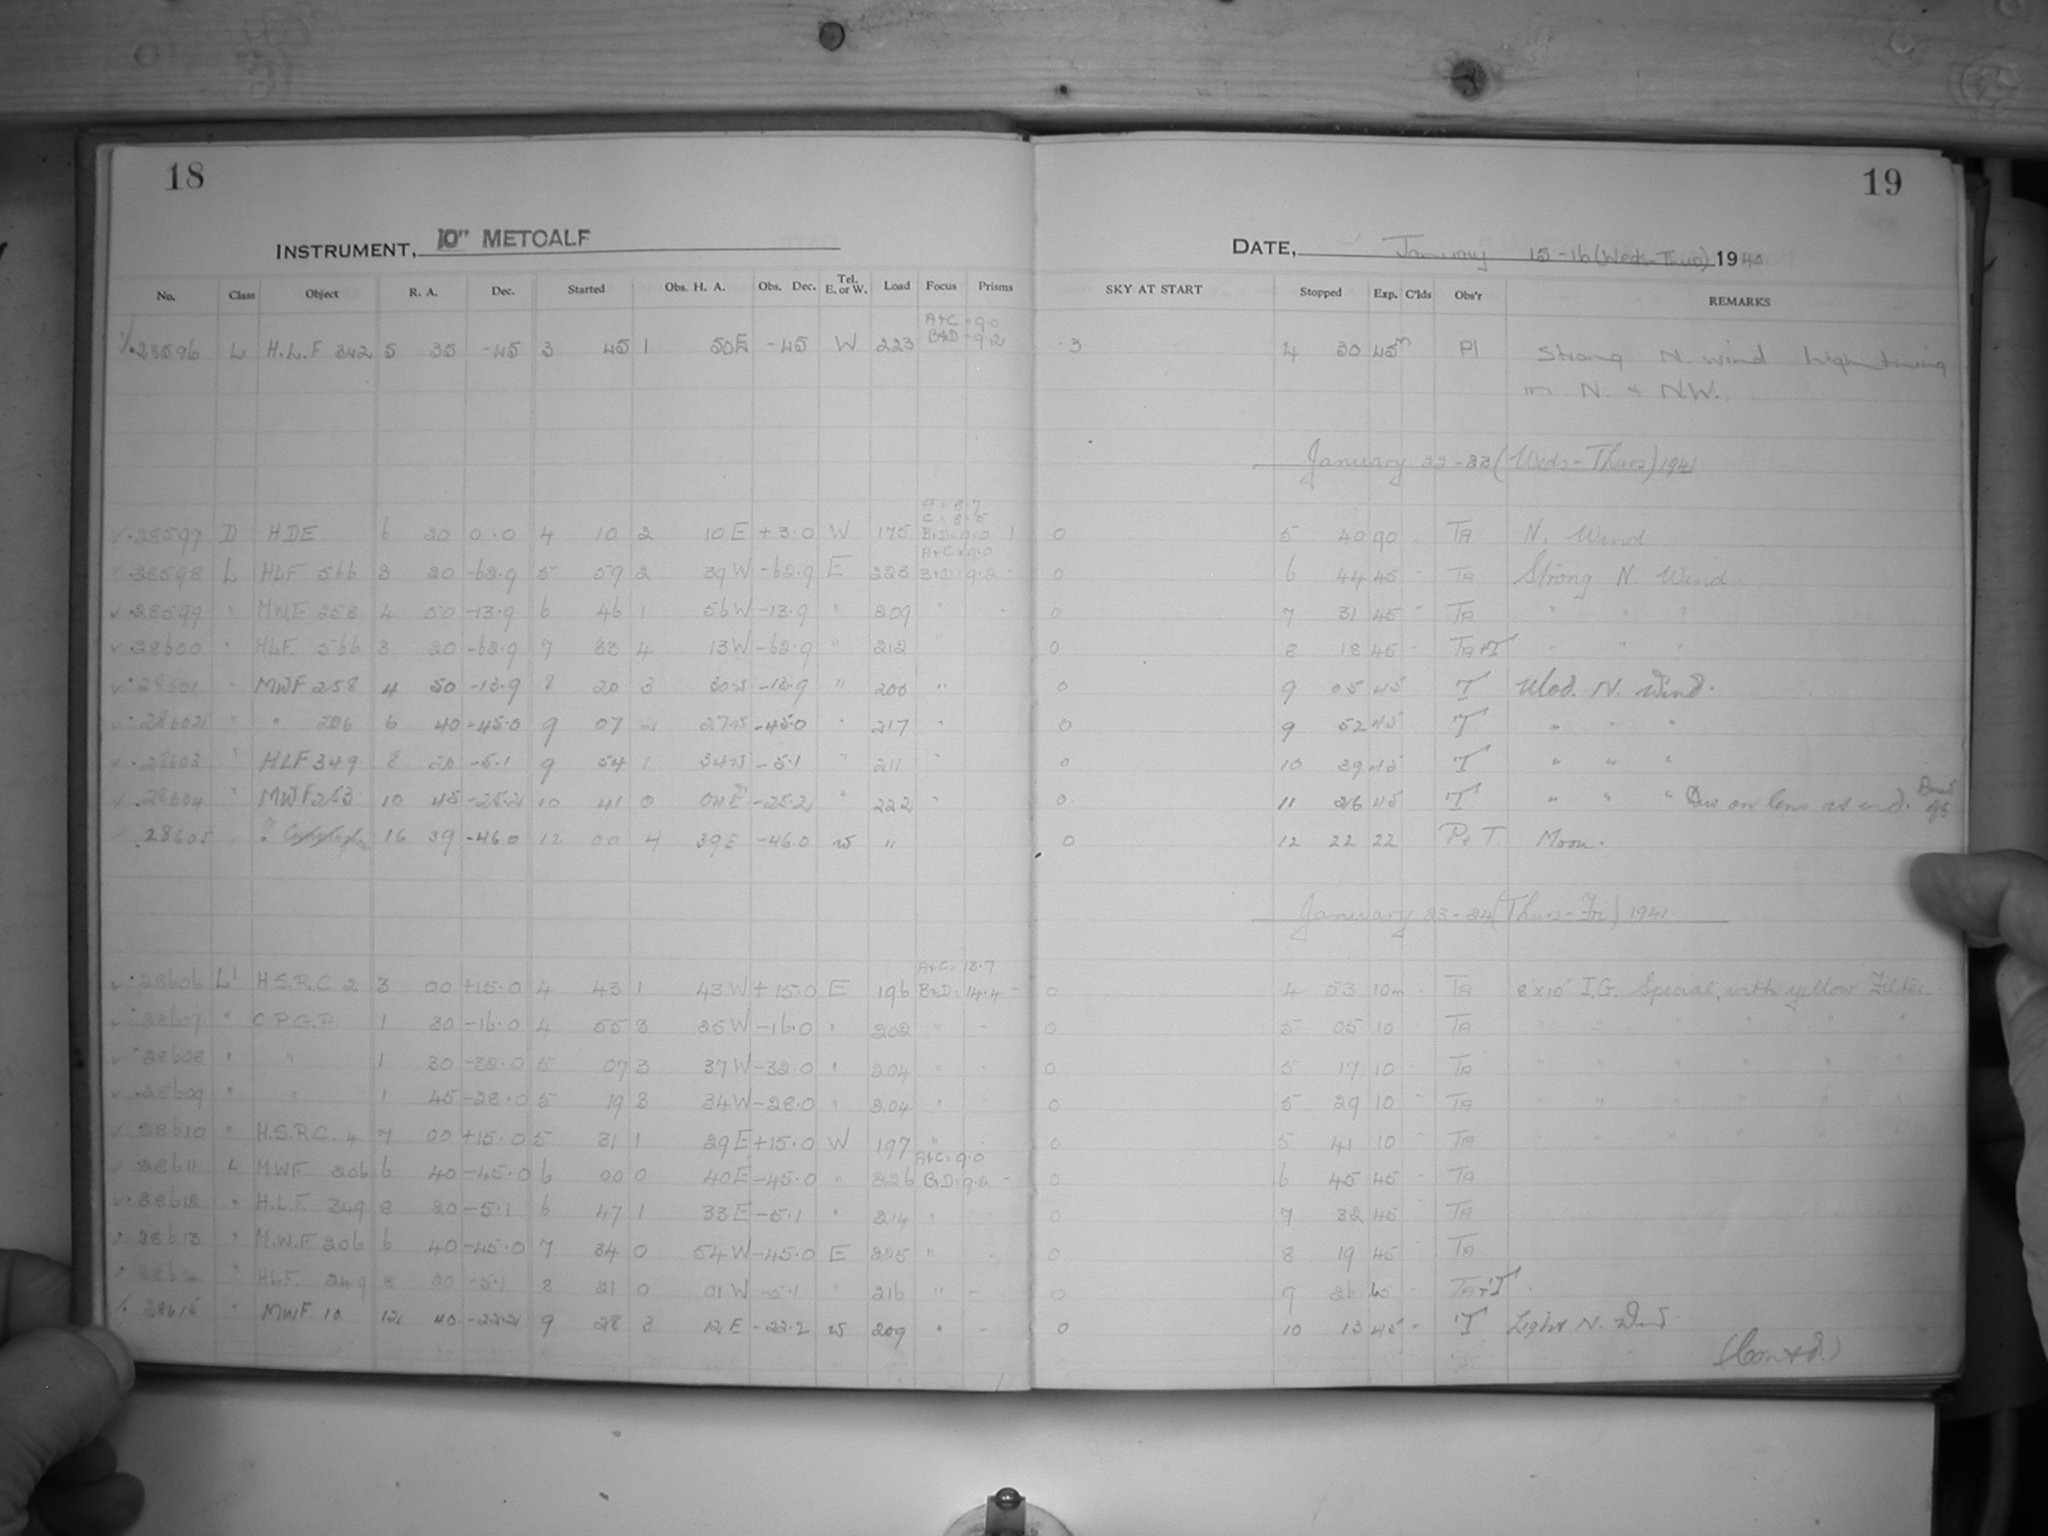 18
19
INSTRUMENT, 10" METCALF
DATE, January 15-16 (Weds-Thus) 19
No. Class Object R. A. Dec. Started Obs. H. A. Obs. Dec. Tel. E. or W. Load Focus Prisms SKY AT START Stopped Exp. C'lds Obs'r REMARKS
A+C = 9.0
28596 L H.L.F 342 5 35 -45 3 45 1 50E -45 W 223 B+D = 9.2 3 4 30 45m Pl Strong N. wind lightning
in N. & N.W.
January 22-23 (Weds-Thurs) 1941
A = 8.7
C = 8.5
28597 D HDE 6 20 0.0 4 10 2 10E +3.0 W 175 B+D = 9.0 0 5 40 90 TA N. Wind
A+C = 9.0
28598 L HLF 566 3 20 -62.9 5 59 2 39W -62.9 E 223 B+D = 9.2 - 0 6 44 45 - TA Strong N. Wind.
28599 " MWF 258 4 50 -13.9 6 46 1 56W -13.9 " 209 " - 0 7 31 45 - TA " " "
28600 " HLF. 566 3 20 -62.9 7 33 4 13W -62.9 " 212 " 0 8 18 45 - TA+T " " "
28601 " MWF 258 4 50 -13.9 8 20 3 30W -13.9 " 200 " 0 9 05 45 T Mod. N. Wind.
28602 " " 206 6 40 -45.0 9 07 2 27W -45.0 " 217 " 0 9 52 45 T " " "
28603 " HLF 349 8 20 -5.1 9 54 1 34W -5.1 " 211 " 0 10 39 45 T " " "
28604 " MWF 253 10 45 -25.2 10 41 0 04E -25.2 " 222 " 0. 11 26 45 T " " " Dew on lens at end.
28605 " 16 39 -46.0 12 00 4 39E -46.0 W " 0 12 22 22 P+T. Moon.
January 23-24 (Thurs-Fri) 1941
A+C = 13.7
28606 L' H.S.R.C 2 3 00 +15.0 4 43 1 43W +15.0 E 196 B+D = 14.4 - 0 4 53 10m - TA 8"x10" I.G. Special, with yellow Filter.
28607 " C.P.G.P. 1 30 -16.0 4 55 3 25W -16.0 " 202 " - 0 5 05 10 - TA " " " " " "
28608 " " 1 30 -32.0 5 07 3 37W -32.0 " 204 " - 0 5 17 10 - TA " " " " " "
28609 " " 1 45 -28.0 5 19 3 34W -28.0 " 204 " - 0 5 29 10 - TA " " " " " "
28610 " H.S.R.C. 4 7 00 +15.0 5 31 1 29E +15.0 W 197 " - 0 5 41 10 - TA " " " " " "
A+C = 9.0
28611 L M.W.F. 206 6 40 -45.0 6 00 0 40E -45.0 " 226 B+D = 9.2 - 0 6 45 45 - TA
28612 " H.L.F. 349 8 20 -5.1 6 47 1 33E -5.1 " 214 " - 0 7 32 45 TA
28613 " M.W.F 206 6 40 -45.0 7 34 0 54W -45.0 E 225 " - 0 8 19 45 - TA
HLF. 349 8 20 -5.1 8 21 0 01W -5.1 " 216 " - 0 9 26 65 - TA+T
28615 " MWF. 10 12 40 -22.2 9 28 3 12E -22.2 W 209 " - 0 10 13 45 - T Light N. Wind
(Contd.)